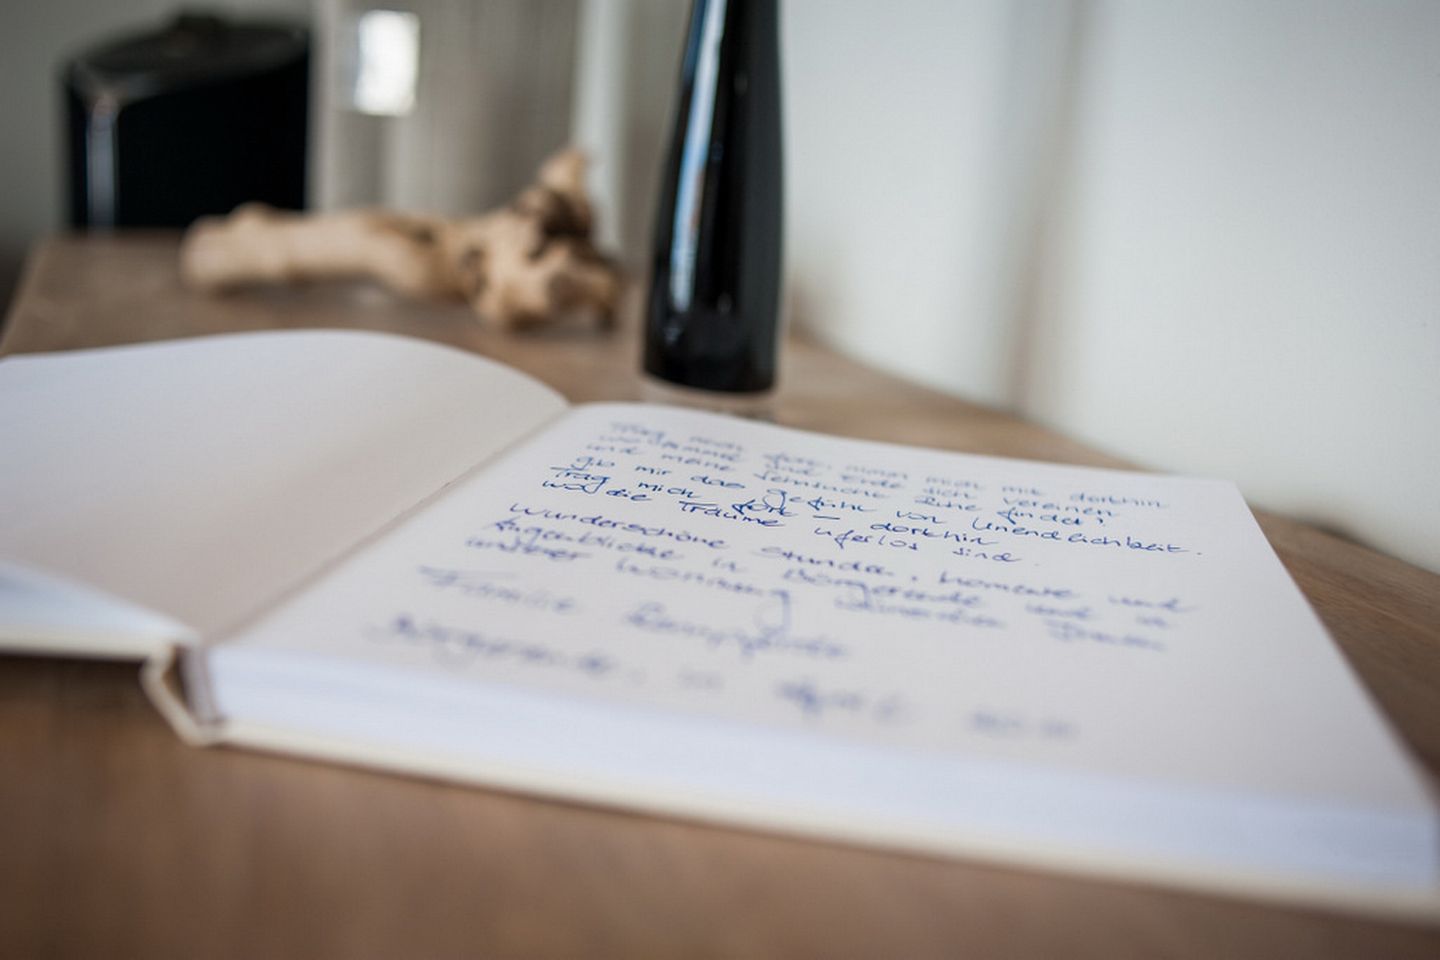 Trag mich fort, nimm mich mit dorthin
wo Himmel und Erde sich vereinen
und meine Sehnsucht Ruhe findet,
gib mir das gefühl von Unendlichkeit.
Trag mich fort – dorthin
wo die Träume uferlos sind.
Wunderschöne Stunden, Momente und
Augenblicke in Börgerende und in
unserer Wohnung
Familie
Börgerende, im April